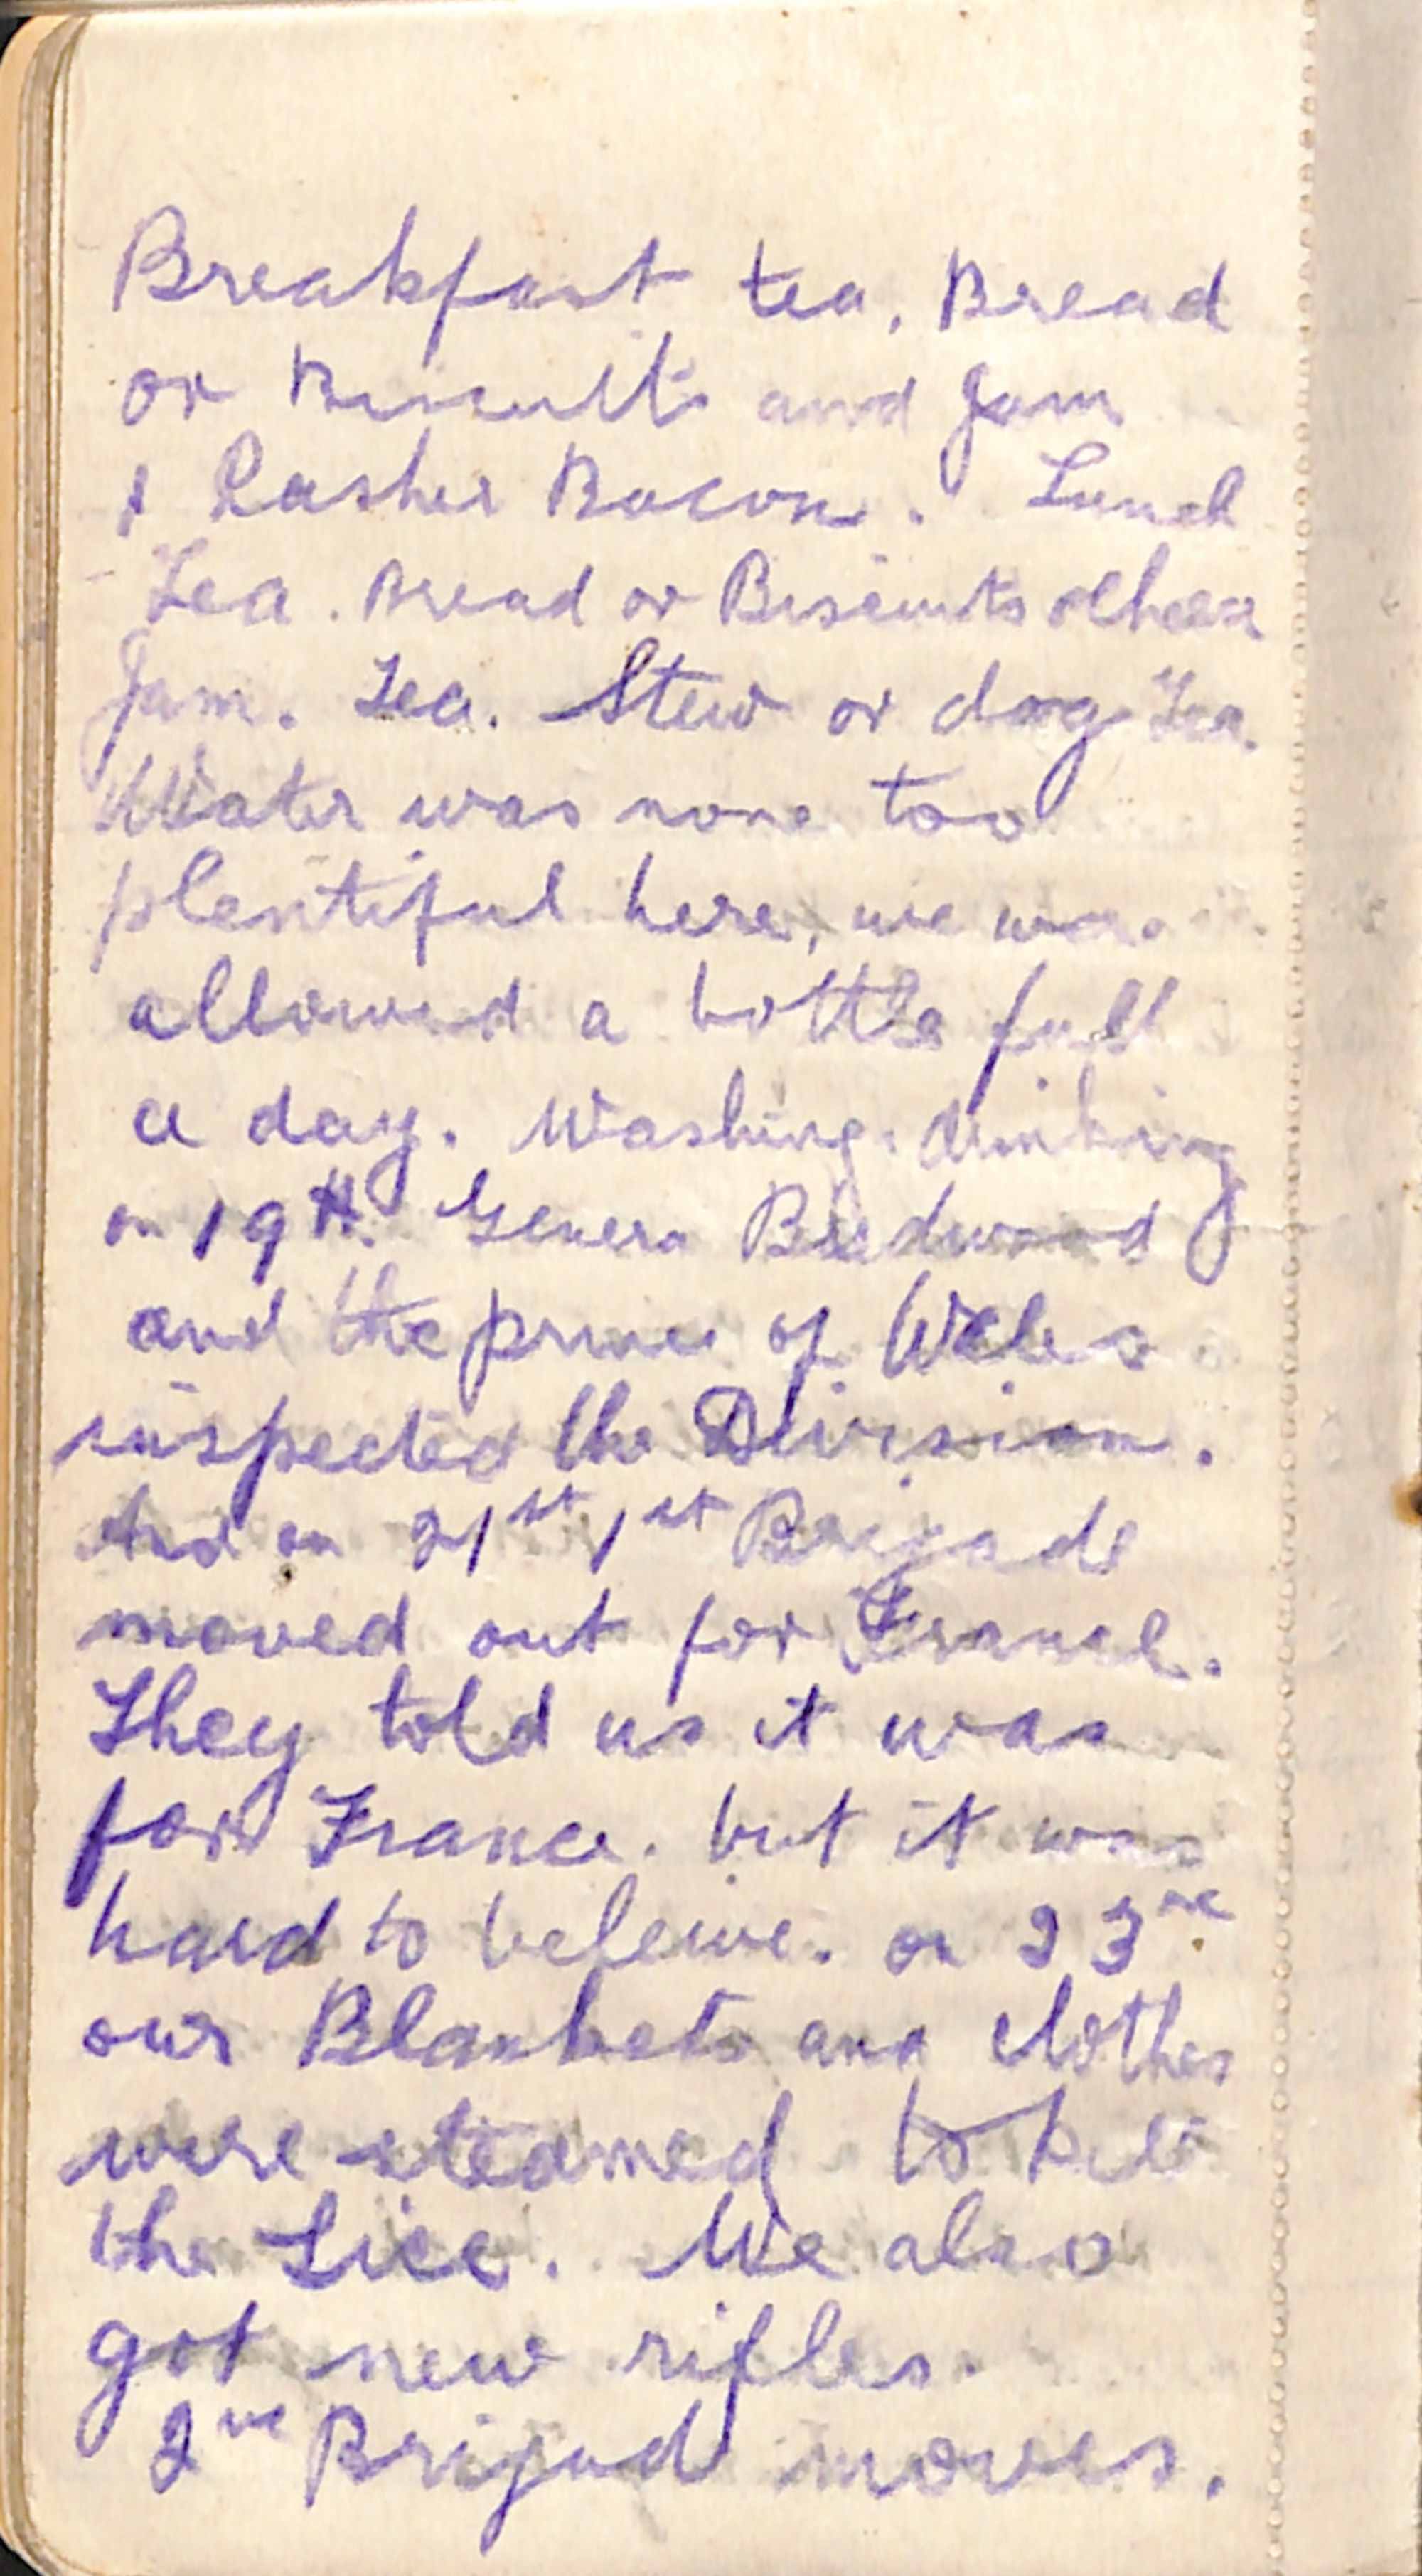 Breakfast tea, Bread
or Biscuits and Jam
1 Rasher Bacon. Lunch
Tea. Bread or Biscuits
Jam. Tea. Stew or dog Tea.
Water was none too
plentiful here, we were
allowed a bottle full
a day. Washing. drinking
on 19th. Genera Birdwood
and the prince of Wales
inspected the Division.
And on 21st 1st Brigade
moved out for France.
They told us it was
for France. but it was
hard to beleive. on 23rd
our Blankets and clothes
were steamed to kill
the Lice. We also
got new rifles.
2nd Brigad moves.